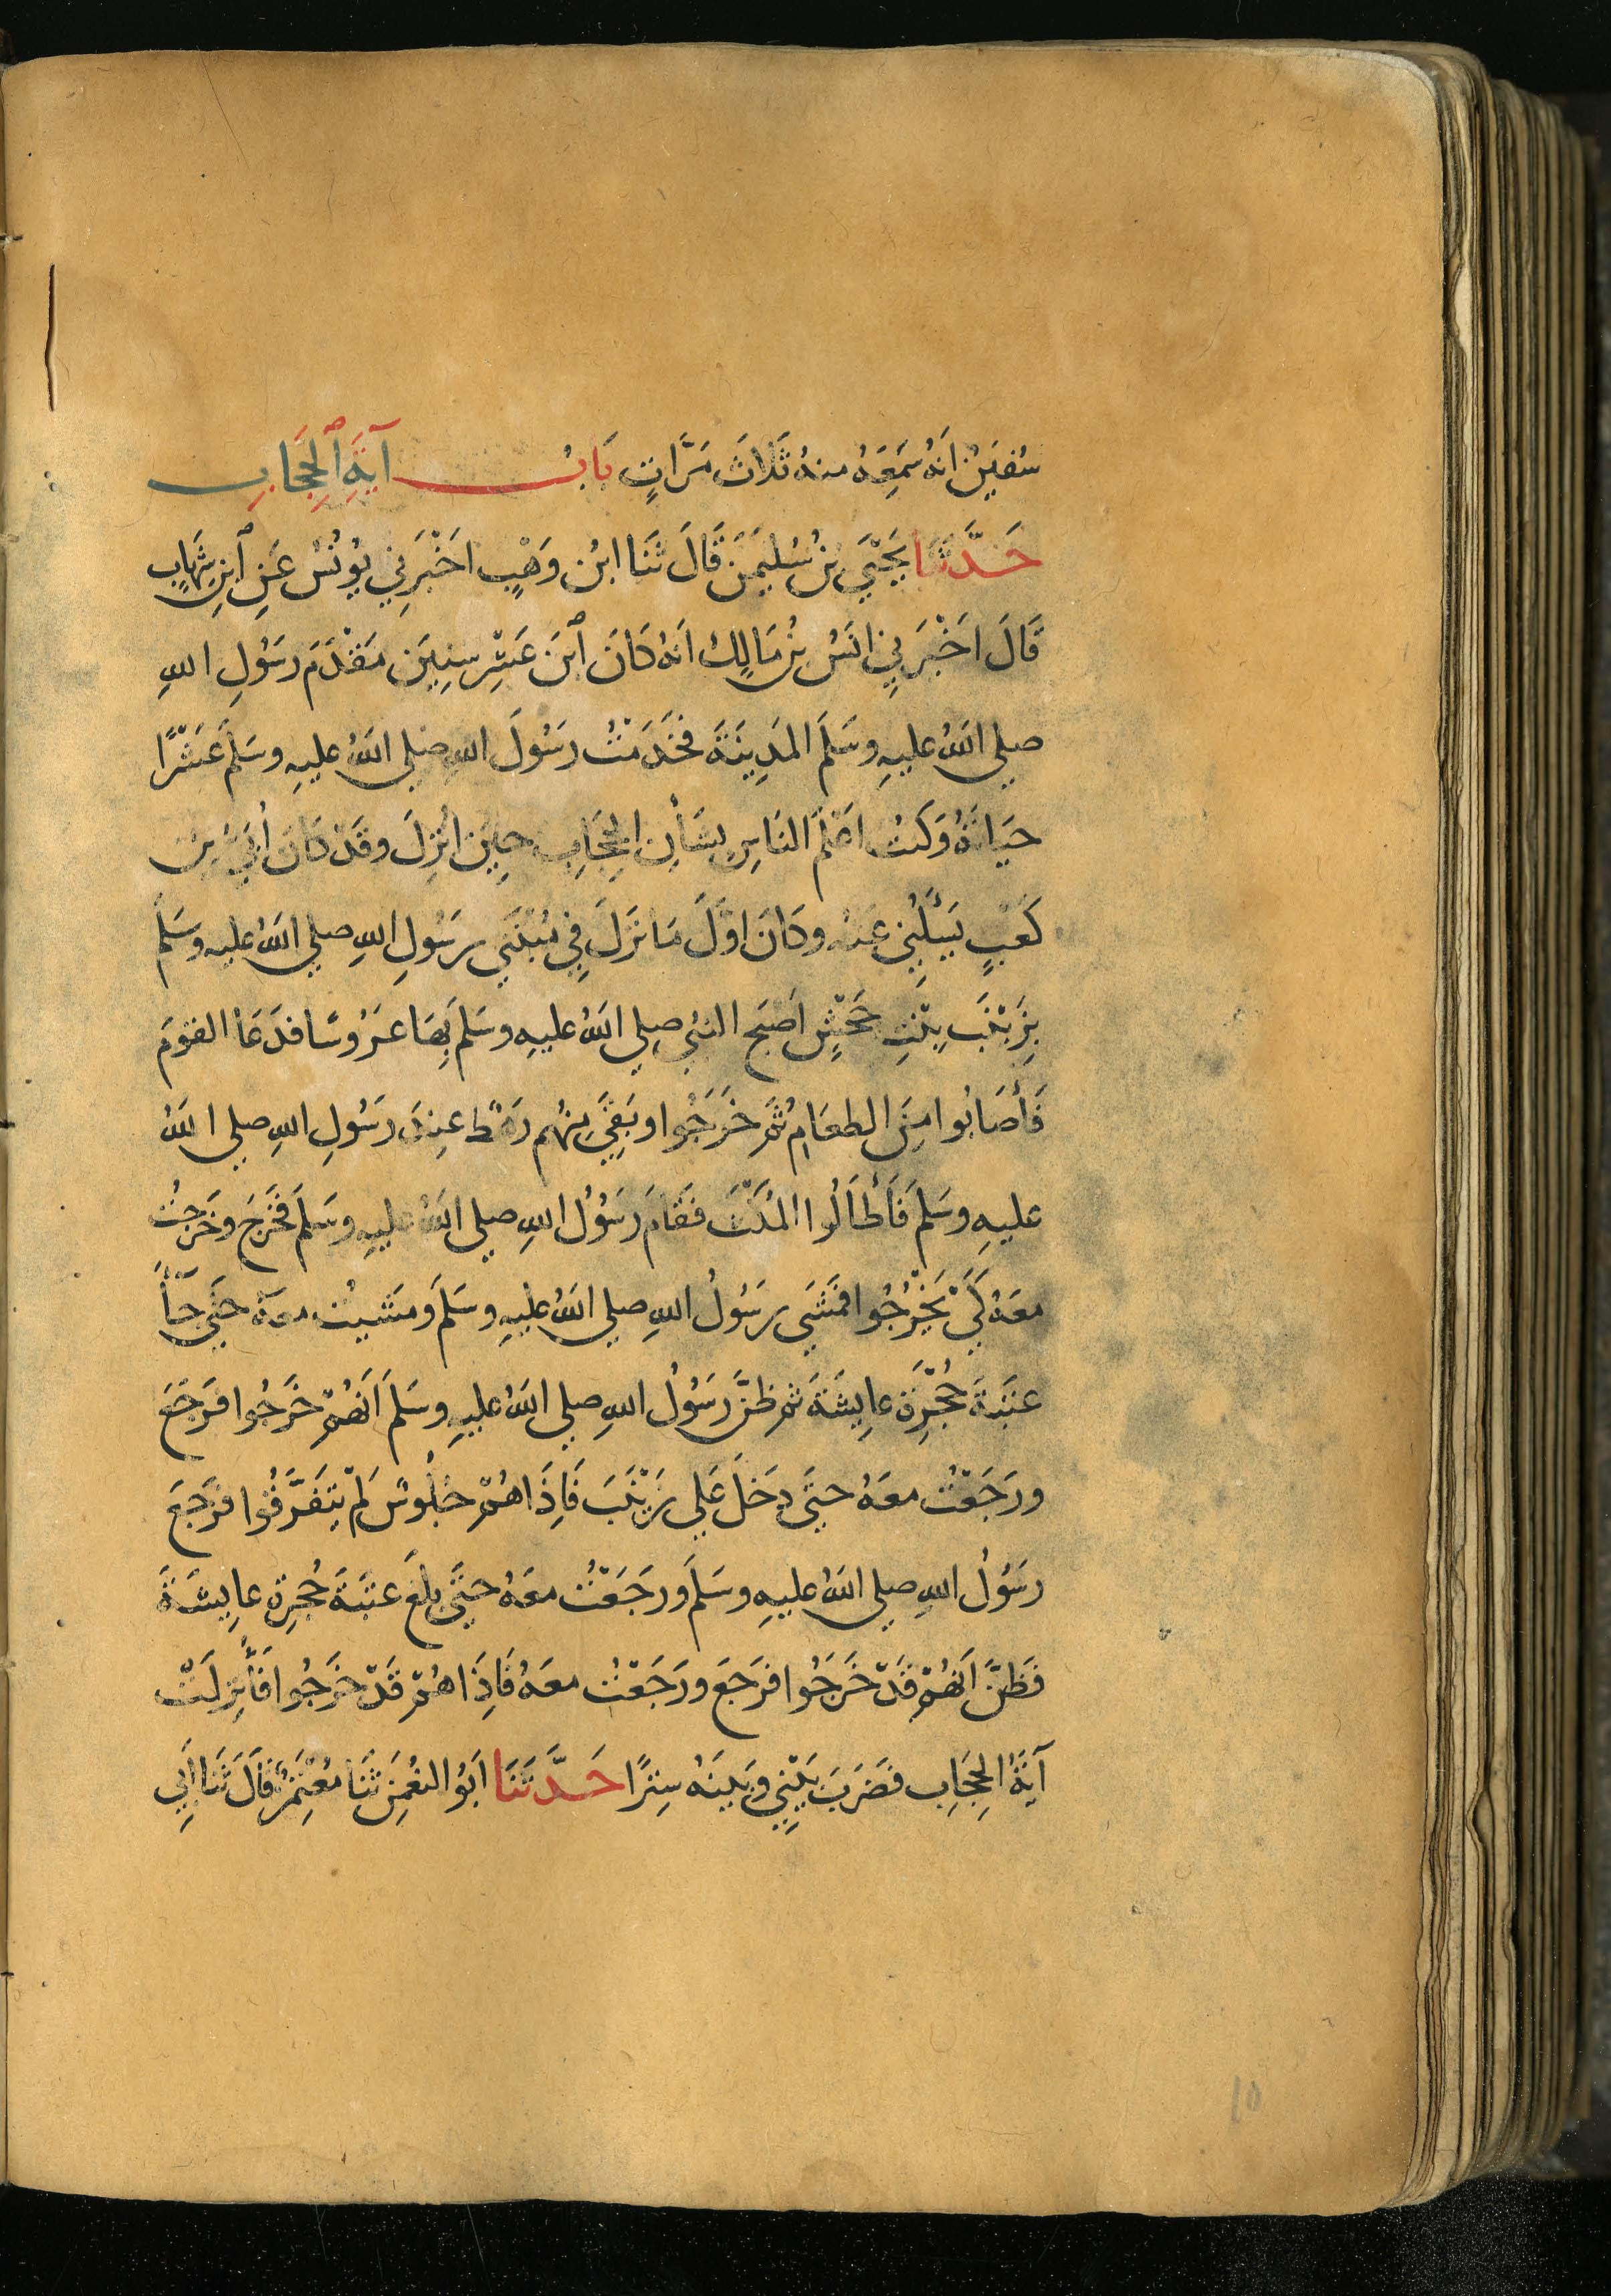 سُفيَنُ اَنهُ سَمِعَهُ منهُ ثَلاثَ مَرَّاتٍ بَابُ آيَةِ ٱلحِجَابِ
حَدَّثَنَا يَحْيَى بنُ سُلَيمَنَ قَالَ ثَنَا ابنُ وَهْبٍ اخَبَرنِي يُونُسُ عَنِ ٱبنِ شِهَابٍ
قَالَ اخَبَرنِي انَسُ بنُ مَالِكٍ اَنهُ كَانَ ٱبنَ عَشْرِ سِنِينَ مَقْدَمَ رَسُولِ اللهِ
صلى اللهُ عليهِ وسَلمَ المَدِينَةَ فخَدَمْتُ رَسُولَ اللهِ صلى اللهُ عليهِ وسَلمَ عَشْرًا
حيَاتَهُ وَكنتُ اعْلَمَ النَاسِ بِشَأنِ الحِجَابِ حِينَ انُزِلَ وقَدْ كَانَ أُبَيُّ بنُ
كَعْبٍ يَسْئَلُنِي عَنهُ وكَانَ اوَّلَ مَا نَزَلَ فِي مُبْتَنَى رَسُولِ اللهِ صلى اللهُ عليه وسَلم
بِزَيْنَبَ بِنْتِ جَحْشٍ اَصبَح النبَي صلى اللهُ عليهِ وسَلمَ بِهَا عَرُوسًا فدَعَا القوَمَ
فَأَصَابُوا مِنَ الطعَامِ ثُمَ خَرَجُوا وبَقِيَ مِنهُم رَهْطٌ عِندَ رَسُولِ اللهِ صلى اللهُ
عليهِ وسَلمَ فَأَطَالُوا المُكْثَ فقَامَ رَسُولُ اللهِ صلى اللهُ عليهِ وسَلمَ فخَرَجَ وخَرَجتُ
معَهُ كَيْ يَخْرُجُوا فمَشَى رسُولُ اللهِ صلى اللهُ عليهِ وسَلمَ ومَشَيتُ معَهُ حتَى جَآءَ
عتَبَةَ حُجْرَةِ عايِشَةَ ثم ظنَّ رَسُولُ اللهِ صلى اللهُ عليهِ وسَلمَ اَنهُمْ خَرَجُوا فرَجَعَ
ورَجَعْتُ معَهُ حتَى دخَلَ عَلى زيْنَبَ فَاِذَا هُمْ جلُوسٌ لَمْ يتَفَرَّقُوا فرَجَعَ
رَسُولُ اللهِ صلى اللهُ عليهِ وسَلمَ ورجَعْتُ معَهُ حَتَى بلَغَ عتَبَةَ حُجرةِ عايِشَةَ
فظَنَّ اَنهُمْ قَدْ خَرَجُوا فرَجعَ ورَجَعْتُ معَهُ فَاِذَا هُمْ قَدْ خَرَجُوا فَأُنزِلَتْ
آيَةُ الحِجَابِ فضَرَبَ بَيْنِي وبَينَهُ سِترًا حَدَّثَنَا ابَوُ النعُمَنِ ثَنَا مُعْتَمِرٌ قَالَ ثَنَا ابَِي
10